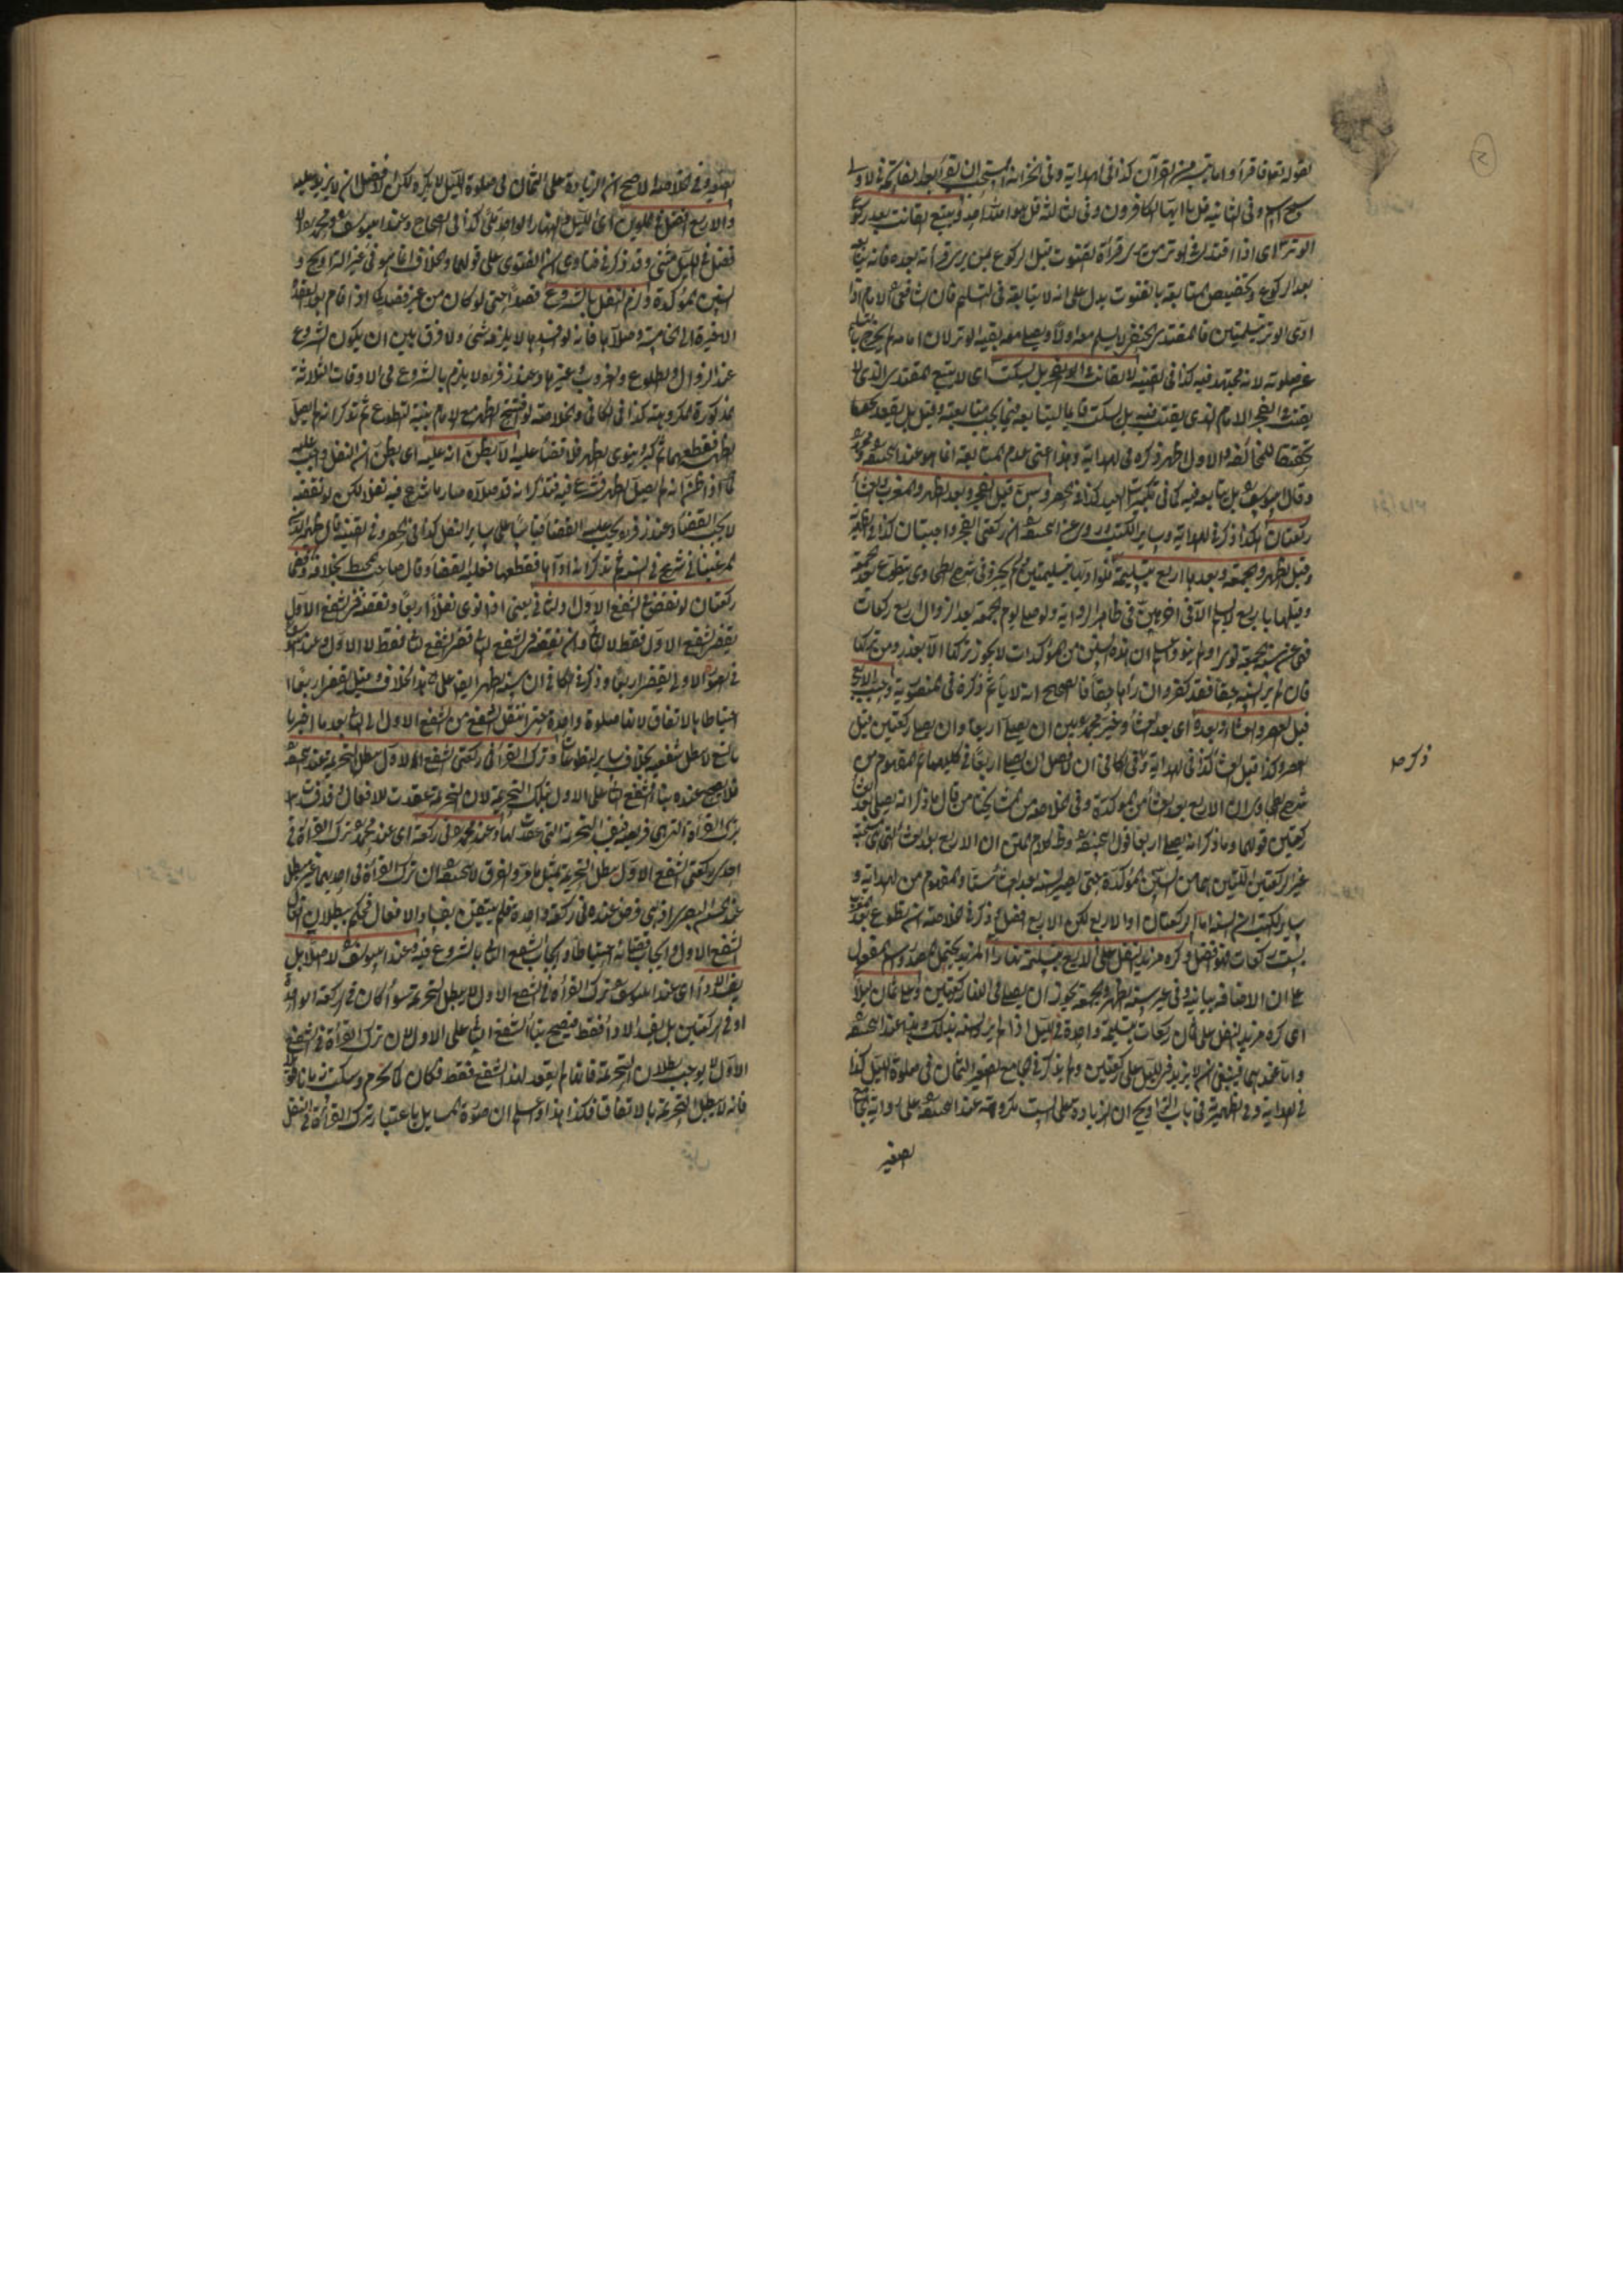 لقوله تعالى فاقرأوا ما تيسر من القرآن كذا في الهداية وفي الخزانة المستحب ان يقرأ بعد الفاتحة في الاولى
سبح اسم وفي الثانية قل يا ايها الكافرون وفي الثالثة قل هو الله احد ويتبع القانت بعد ركوع
الوتر اى اذا اقتدى في الوتر من يرى قراءة القنوت قبل الركوع بمن يرى قراءته بعده فانه يتابعه
بعد الركوع وتخصيص المتابعة بالقنوت يدل على انه لا يتابعه في التسليم فان الشافعي الامام اذا
ادى الوتر بتسليمتين فالمقتدى الحنفي لا يسلم معه اولا ويصلي معه بقية الوتر لان امامه لم يخرج بالتسليم
عن صلوته لانه مجتهد فيه كذا في القنية لا القانت في الفجر بل يسكت اى لا يتبع المقتدى الذى لا
يقنت في الفجر الامام الذى يقنت فيه بل يسكت قائما ليتابعه فيما يجب متابعته وقيل بل يقعد تحقيقا
تحقيقا للمخالفة والاول اظهر ذكره في الهداية وهذا اعنى عدم المتابعة انما هو عند ابى حنيفة ومحمد
وقال ابو يوسف بل يتابعه فيه كما في تكبيرات العيد كذا في الحصر وسن قبل الفجر وبعد الظهر والمغرب والعشاء
ركعتان هكذا ذكر في الهداية وساير الكتب وروى عن ابى حنيفة ان ركعتى الفجر واجبتان كذا في
وقبل الظهر والجمعة وبعدها اربع بتسليمة فلو اداها بتسليمتين لم يجز وفي شرح الطحاوى يتطوع بعد الجمعة
وقبلها باربع لا يسلم الا في اخرهن في ظاهر الرواية ولو صلى يوم الجمعة بعد الزوال اربع ركعات
فهى عن سنة الجمعة نوى او لم ينو واعلم ان هذه السنن من المؤكدات لا يجوز تركها الا بعذر ومن تركها
فان لم ير السنة حقا فقد كفر وان رأها حقا فالصحيح انه لا يأثم ذكره في المنصورية وحبب الاربع
قبل العصر والعشاء وبعده اى بعد العشاء وخير محمد بين ان يصلى اربعا وان يصلى ركعتين قبل
العصر وكذا قبل العشاء كذا في الهداية وفي الكافى ان الافضل ان يصلى اربعا في كليهما ثم المفهوم من
شرح الطحاوى ان الاربع بعد العشاء من المؤكدة وفي الخلاصة من مشايخنا من قال ما ذكر انه يصلى بعد العشاء
ركعتين قولهما وما ذكر انه يصلى اربعا قول ابى حنيفة وظاهر كلام المتن ان الاربع بعد العشاء التى هى مستحبة
غير الركعتين اللتين هما من السنن المؤكدة حتى يصير السنة بعد العشاء ستا والمفهوم من الهداية و
ساير الكتب ان السنة اما الركعتان او الاربع لكن الاربع افضل ذكر في الخلاصة ان تطوع بعد المغرب
بست ركعات فهو افضل وكره مزيد النفل على الاربع بتسليمة نهارا المزيد يحتمل المصدر واسم المفعول
على ان الاضافة بيانية وفي غير سنة الظهر والجمعة يجوز ان يصلى في النهار ركعتين وعلى ثمان ليلا
اى كره مزيد النفل على ثمان ركعات بتسليمة واحدة في الليل اذا لم يرد السنة بذلك وهذا عند ابى حنيفة
واما عندهما فينبغى ان لا يزيد في الليل على ركعتين ولم يذكر في الجامع الصغير الثمان في صلوة الليل كذا
في الهداية وفي الظهيرية في باب التراويح ان الزيادة على الست مكروهة عند ابى حنيفة على رواية الجامع
الصغير
ذكره
الصغير وفي الخلاصة الاصح ان الزيادة على الثمان في صلوة الليل لا يكره لكن الافضل ان لا يزيد عليه
والاربع افضل في الملوين اى الليل والنهار الواحد ملى كذا في الصحاح وعند ابى يوسف ومحمد
افضل في الليل مثنى وقد ذكر في فتاوى ان الفتوى على قولهما والخلاف انما هو في غير التراويح و
السنن المؤكدة ولزم النفل بالشروع قصدا حتى لو كان من غير قصد كما اذا قام بعد القعدة
الاخيرة الى الخامسة وصلاها فانه لو افسدها لا يلزمه شئ ولا فرق بين ان يكون الشروع
عند الزوال والطلوع والغروب وغيرها وعند زفر لا يلزم بالشروع في الاوقات الثلاثة
المذكورة المكروهة كذا في الكافى والخلاصة لو افتتح الظهر مع الامام بنية التطوع ثم تذكر انه لم يصل
الظهر فقطعها ثم كبر ينوى الظهر فلا قضاء عليه الا بظن انه عليه اى بظن ان النفل واجب عليه
كما اذا ظن انه لم يصل الظهر فشرع فيه فتذكر انه قد صلاه صار ما شرع فيه نفلا لكن لو نقضه
لا يجب القضاء وعند زفر يجب عليه القضاء قياسا على ساير النفل كذا في الحصر وفي القنية قال ظهير الدين
المرغينانى شرع في السنة ثم تذكر انه اداها فقطعها فعليه القضاء وقال صاحب المحيط بخلافه وقضى
ركعتان لو نقض في الشفع الاول والثانى يعنى اذا نوى نفلا اربعا ونقضه في الشفع الاول
يقضى الشفع الاول فقط لا الثانى وان نقضه في الشفع الثانى يقضى الشفع الثانى فقط لا الاول وعند ابى يوسف
في الصورة الاولى يقضى اربعا وذكر في الكافى ان سنة الظهر ايضا على هذا الخلاف وقيل يقضى اربعا
احتياطا بالاتفاق لانها صلوة واحدة حتى لا ينتقل الشفع من الشفع الاول الى الثانى بعد ما اخبر بها
بالبيع لا يبطل شفعته بخلاف ساير التطوعات وترك القراءة في ركعتى الشفع الاول يبطل التحريمة عند ابى حنيفة
فلا يصح عنده بناء الشفع الثانى على الاول بتلك التحريمة لان التحريمة عقدت للافعال وقد فسدت
بترك القراءة التى هى فريضة فيفسد التحريمة التى عقدت لها وعند محمد في ركعة اى عند محمد ترك القراءة في
احدى ركعتى الشفع الاول يبطل التحريمة
عند الحسن البصرى اذ هى فرض عنده في ركعة واحدة فلم يتيقن بفساد الافعال فحكم ببطلان
الشفع الاول وايجاب قضائه احتياطا وايجاب الشفع الثانى بالشروع فيه وعند ابى يوسف لا اصلا بل
يفسد الاداء اى عند ابى يوسف ترك القراءة في الشفع الاول لا يبطل التحريمة سواء كان في الركعة الواحدة
او في الركعتين بل يفسد الاداء فقط فيصح بناء الشفع الثانى على الاول لان ترك القراءة في الشفع
الاول لا يوجب بطلان التحريمة فانها لم يعقد لهذا الشفع فقط فكان كما تحرم وسكت
فانه لا يبطل التحريمة بالاتفاق فكذا هذا واعلم ان صورة المسايل باعتبار ترك القراءة في النفل